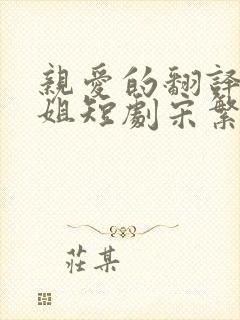 親愛的翻譯
姐短劇宋繁
莊某